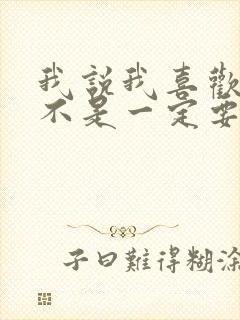 我說我喜歡
不是一定要
子曰難得糊涂